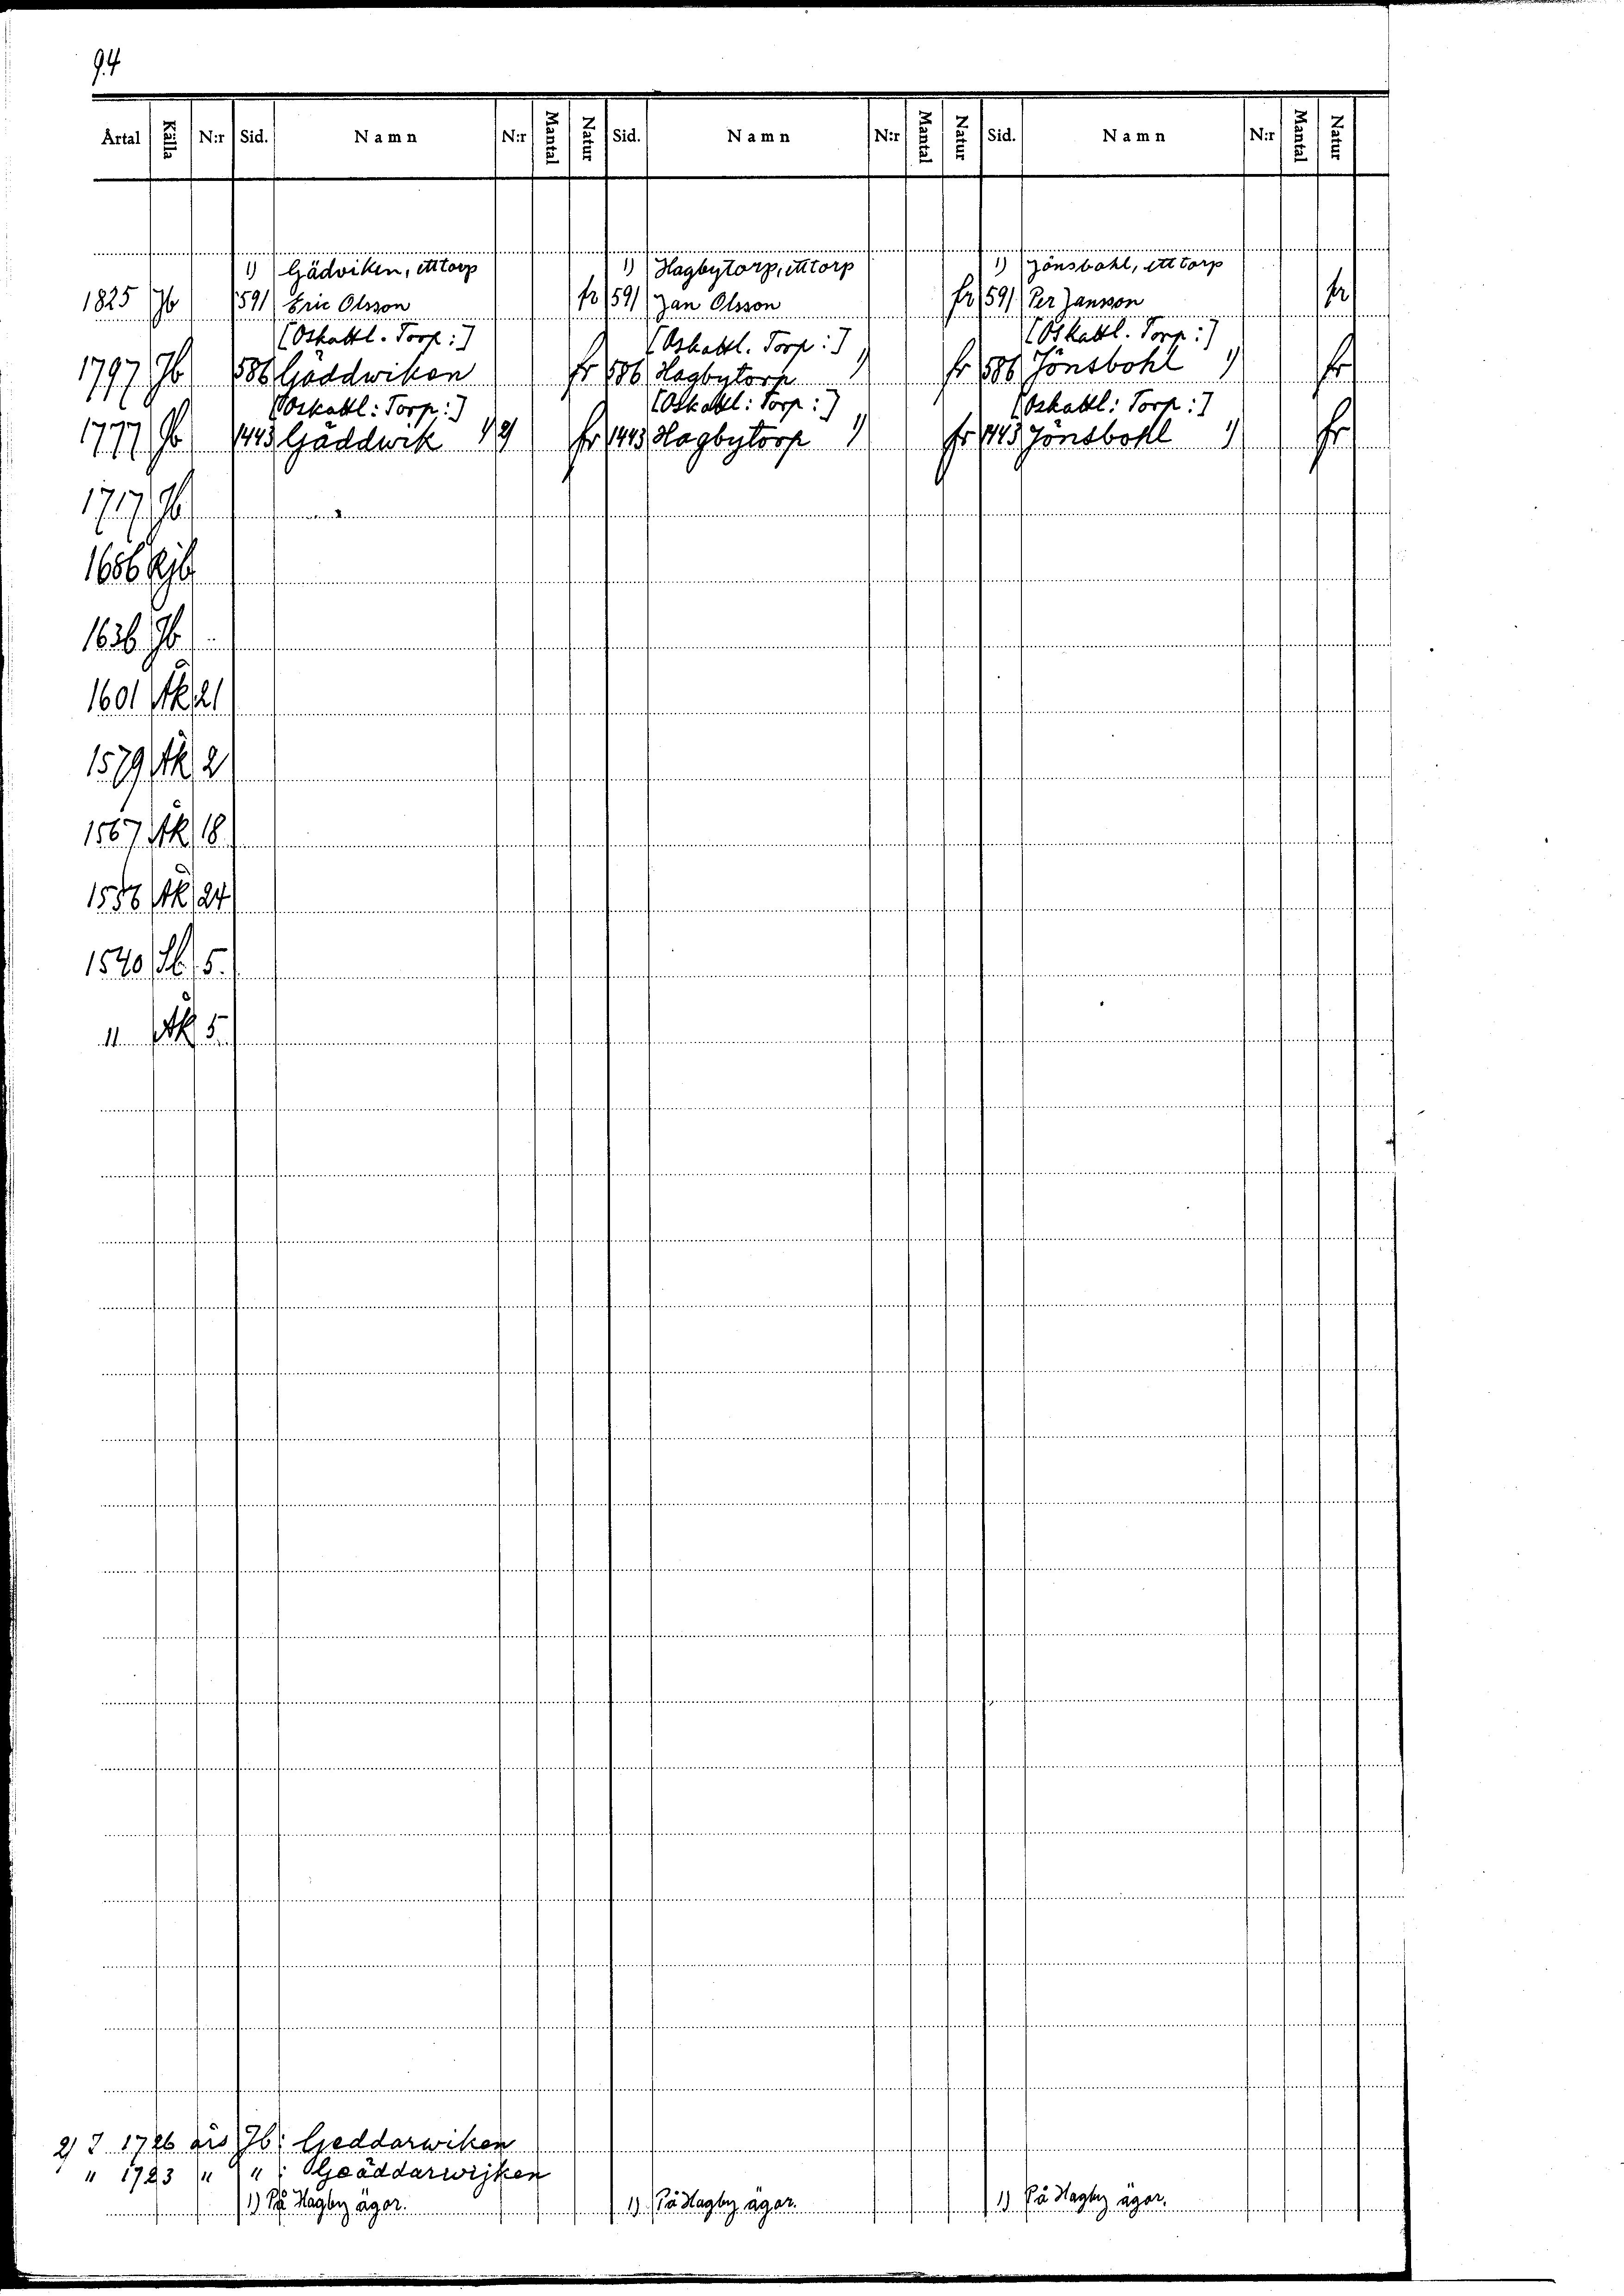 94
Årtal Källa N:r Sid. Namn N:r Mantal Natur Sid. Namn N:r Mantal Natur Sid. Namn N:r Mantal Natur
1) Gädviken, ett torp 1) Hagbytorp, ett torp 1) Jönsbohl, ett torp
1825 Jb 591 Eric Olsson fr 591 Jan Olsson fr 591 Per Jansson fr
[Oskattl. Torp:] [Oskattl. Torp:] [Oskattl. Torp:]
1797 Jb 586 Gäddwiken fr 586 Hagbytorp 1) fr 586 Jönsbohl 1) fr
[Oskattl: Torp:] [Oskattl: Torp:] [Oskattl: Torp:]
1777 Jb 1443 Gäddwik 1) 2) fr 1443 Hagbytorp 1) fr 1443 Jönsbohl 1) fr
1717 Jb
1686 Rjb
1636 Jb
1601 Åk 21
1579 Åk 2
1567 Åk 18
1556 Åk 24
1540 Sb 5.
" Åk 5.
2) I 1726 års Jb: Geddarwiken
" 1723 " " : Geäddarwijken
1) På Hagby ägor. 1) På Hagby ägor. 1) På Hagby ägor.